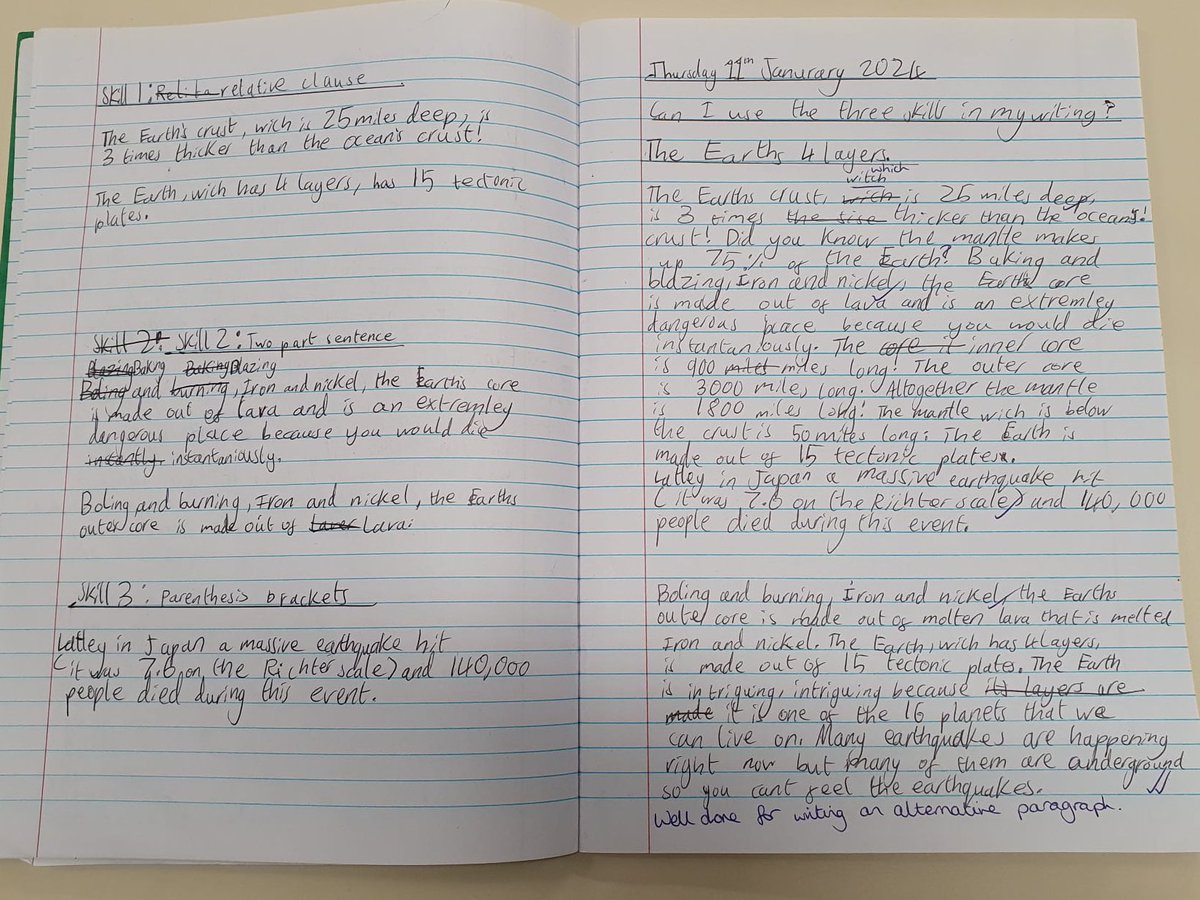 Skill 1: relative clause
The Earth's crust, wich is 25 miles deep, is
3 times thicker than the ocean's crust!
The Earth, wich has 4 layers, has 15 tectonic
plates.
Skill 2: Skill 2: Two part sentence
Blazing Baking Baking Blazing
Boling and burning, Iron and nickel, the Earth's core
is made out of lava and is an extremley
dangerous place because you would die
instantly instantaniously.
Boling and burning, Iron and nickel, the Earths
outer core is made out of laver Lava.
Skill 3: Parenthesis brackets
Latley in Japan a massive earthquake hit
(it was 7.6 on (the Richter scale) and 140,000
people died during this event.
Thursday 11th Janurary 2024
Can I use the three skill in my writing?
The Earths 4 layers.
which
witch
The Earths crust, wich is 25 miles deep,
is 3 times the sise thicker than the ocean's!
crust! Did you know the mantle makes
up 75% of the Earth? Baking and
blazing, Iron and nickel, the Earths core
is made out of lava and is an extremley
dangerous place because you would die
instantaniously. The core it inner core
is 900 miles miles long! The outer core
is 3000 miles long. Altogether the mantle
is 1800 miles long! The mantle wich is below
the crust is 50 miles long: The Earth is
made out of 15 tectonic plates.
Latley in Japan a massive earthquake hit
(it was 7.6 on (the Richter scale) and 140,000
people died during this event.
Boling and burning, Iron and nickel, the Earths
outer core is made out of molten lava that is melted
Iron and nickel. The Earth, wich has 4 layers,
is made out of 15 tectonic plates. The Earth
is intriguing, intriguing because its layers are
made it is one of the 16 planets that we
can live on. Many earthquakes are happening
right now but many of them are underground
so you cant feel the earthquakes.
Well done for writing an alternative paragraph.